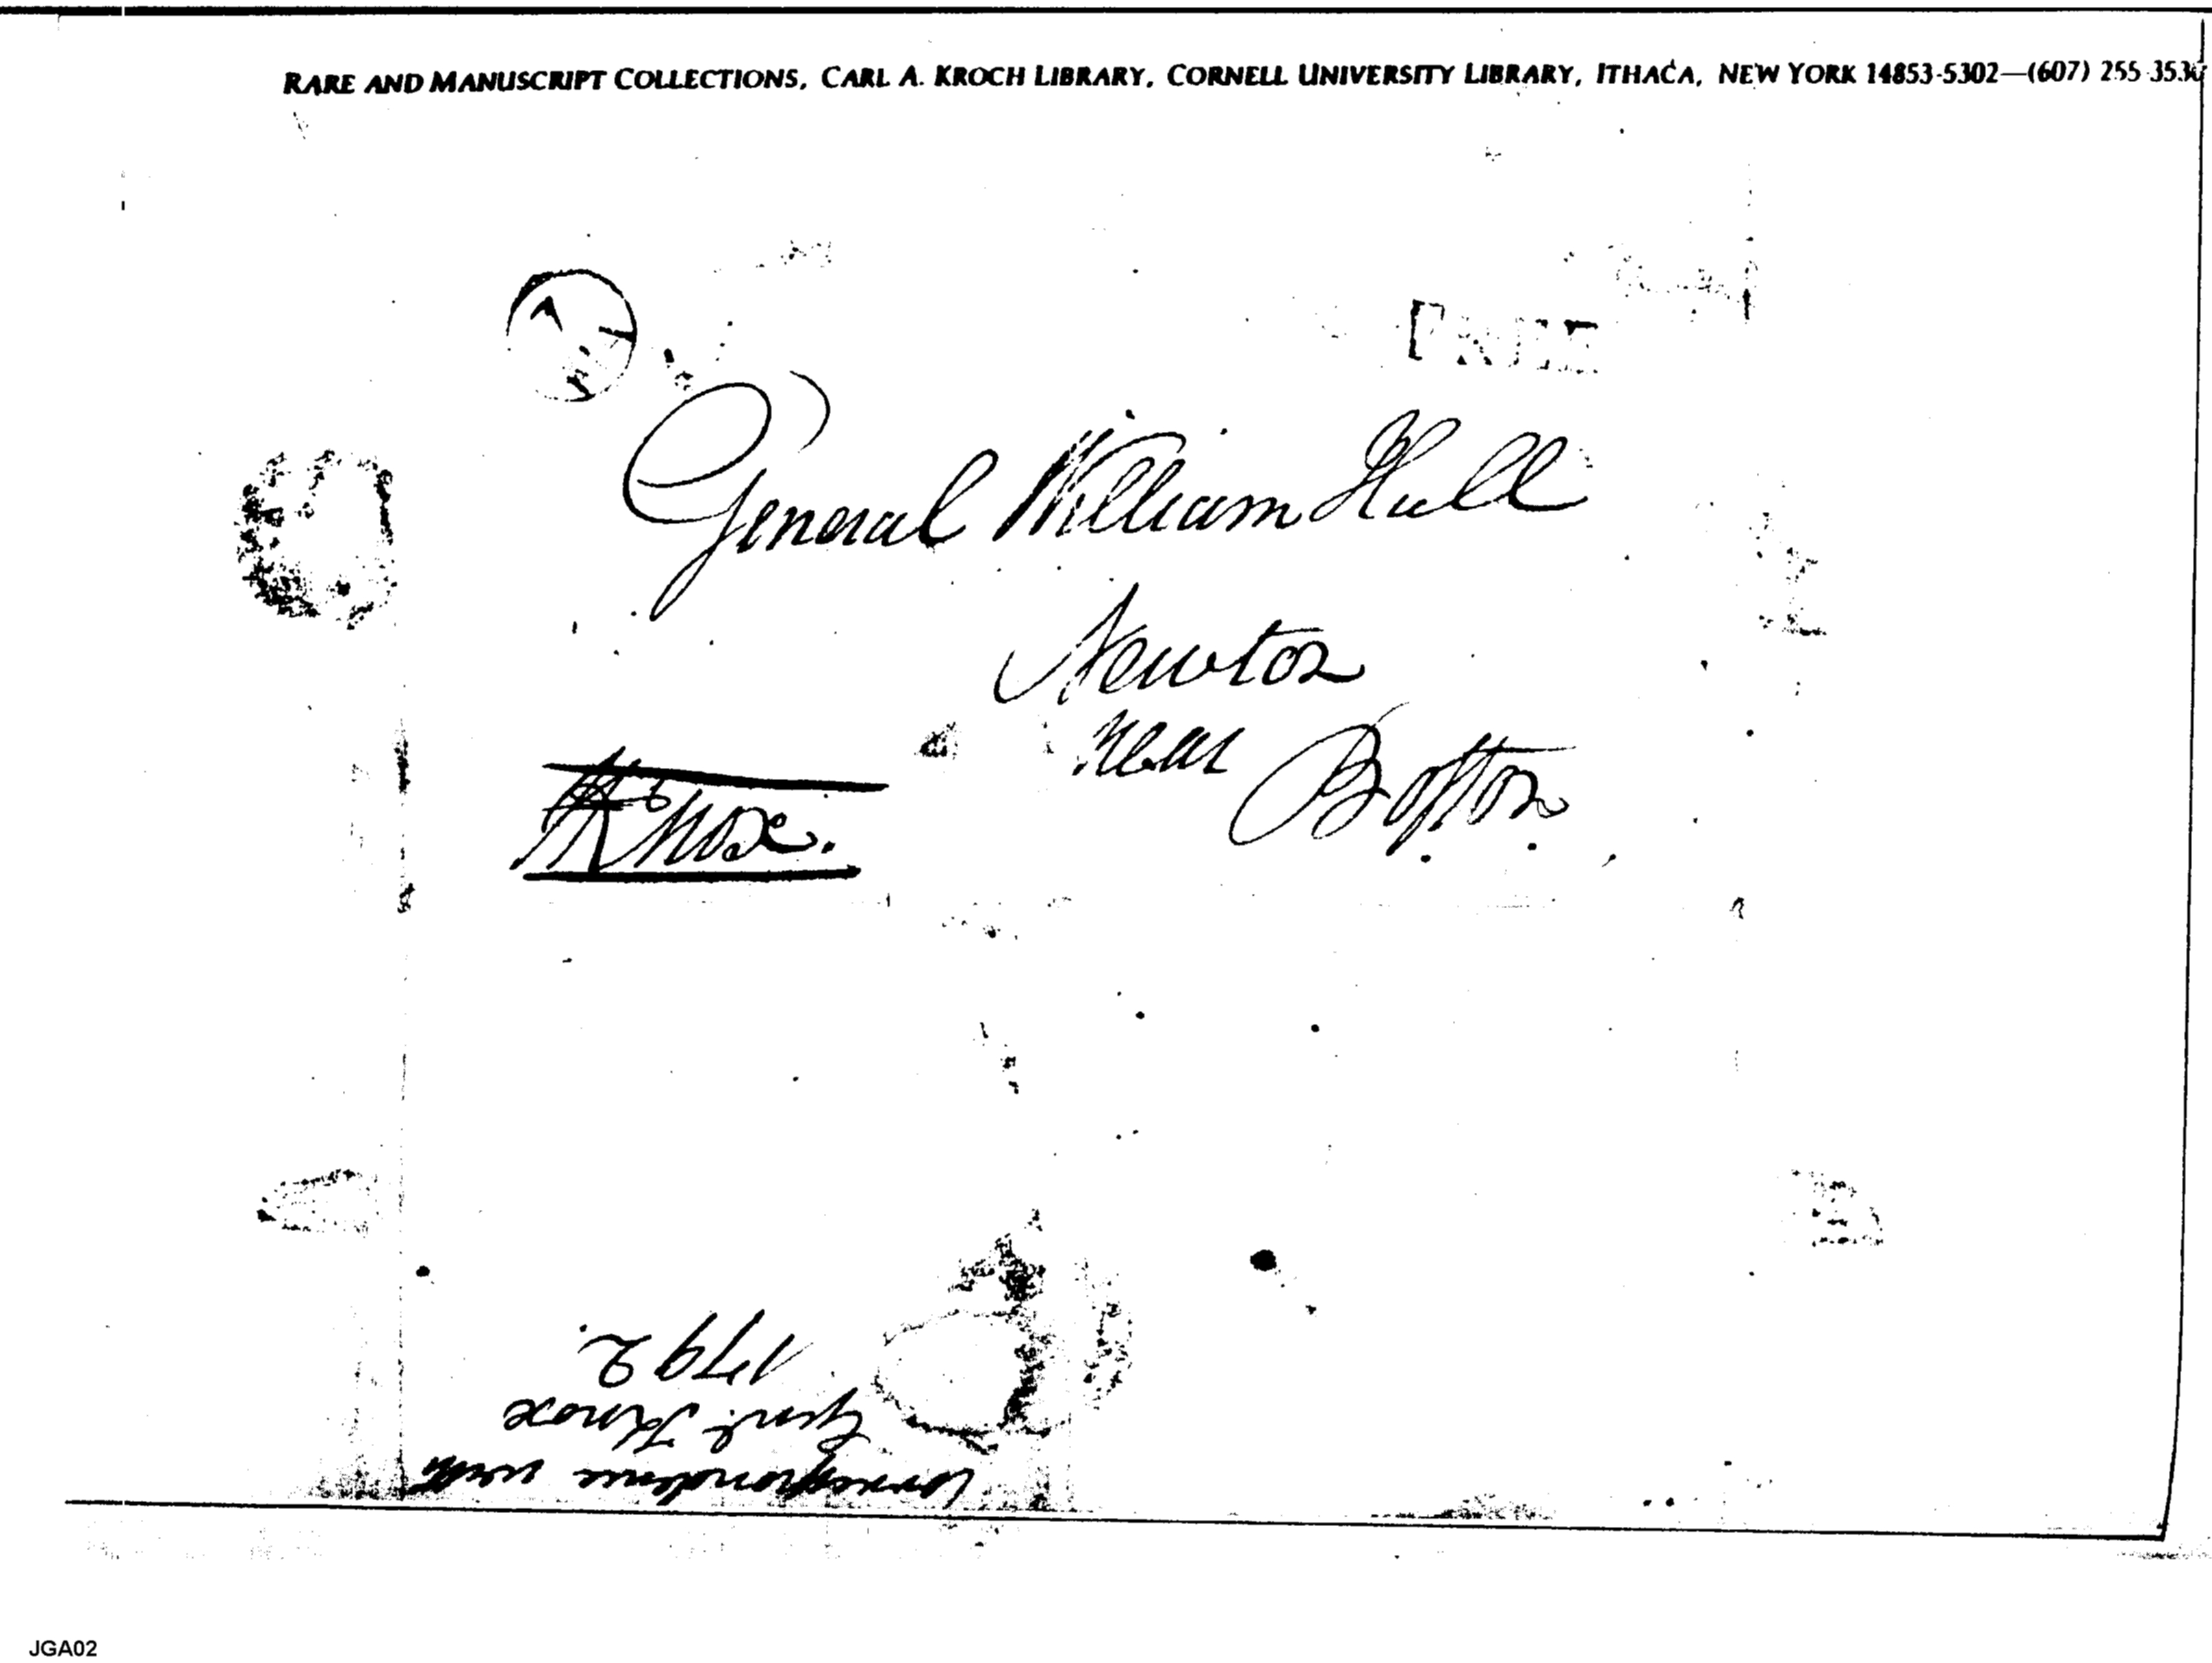 RARE AND MANUSCRIPT COLLECTIONS, CARL A. KROCH LIBRARY, CORNELL UNIVERSITY LIBRARY, ITHACA, NEW YORK 14853-5302—(607) 255-3530
FREE
General William Hull
Newton
near Boston
Knox.
Correspondence with
Genl. Knox
1792.
JGA02